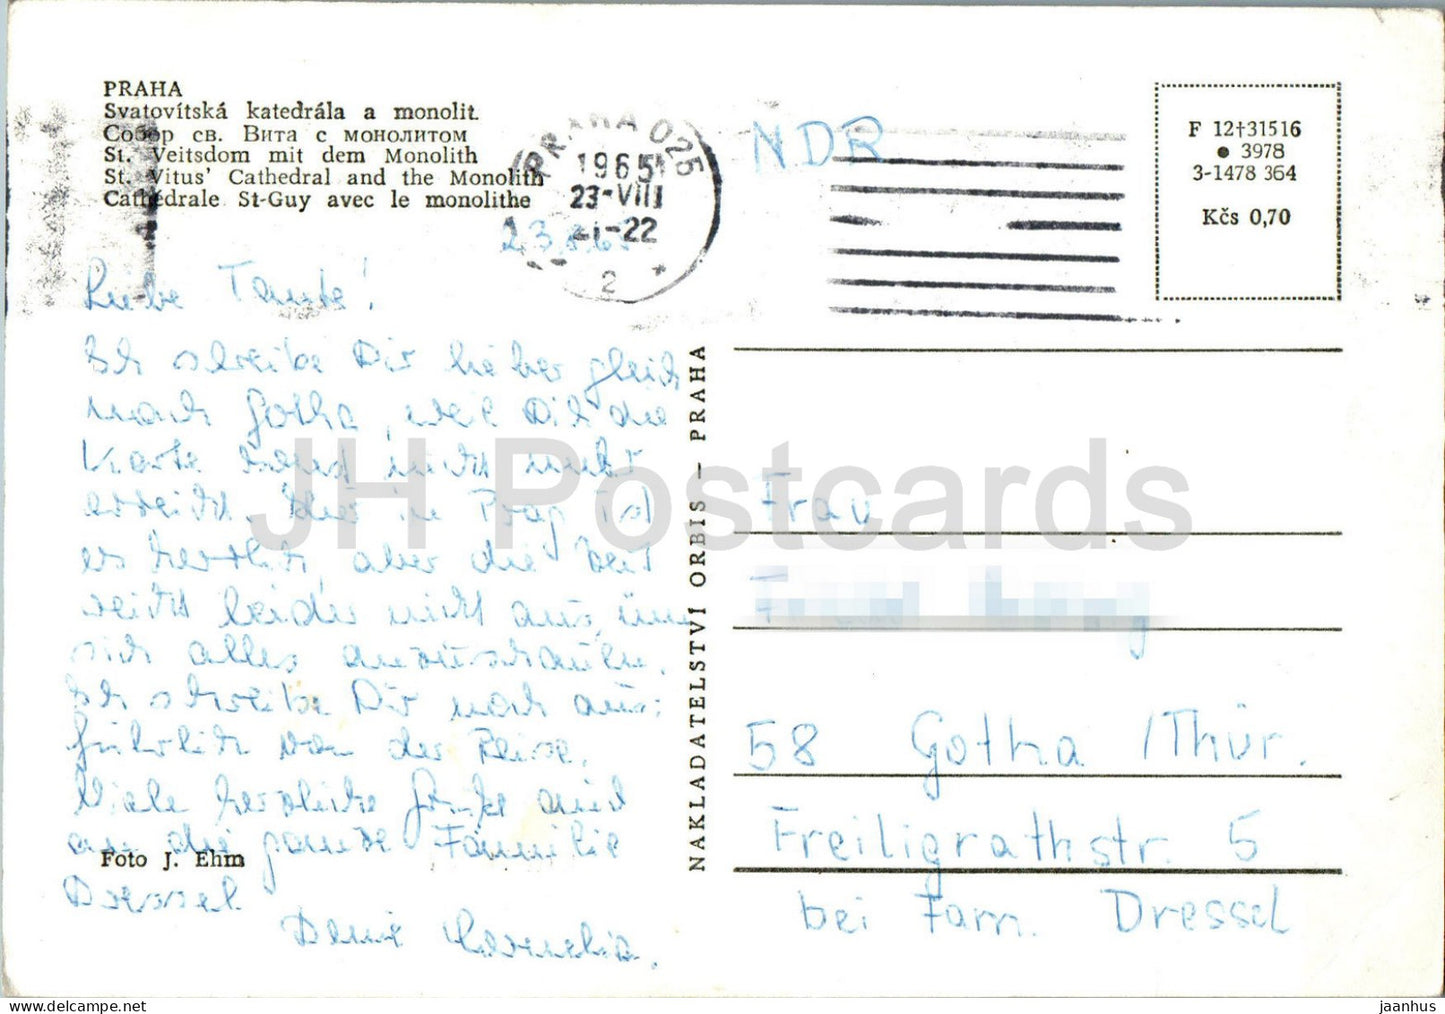 PRAHA
Svatovítská katedrála a monolit.
Собор св. Вита с монолитом
St. Veitsdom mit dem Monolith
St. Vitus' Cathedral and the Monolith
Cathédrale St-Guy avec le monolithe
PRAHA 025
1965
23-VIII
21-22
2
NDR
F 12†31516
● 3978
3-1478 364
Kčs 0,70
23.8.65
Liebe Tante!
Ich schreibe Dir lieber gleich
nach Gotha, weil Dich die
Karte sonst nicht mehr
erreicht. Hier in Prag ist
es herrlich, aber die Zeit
reicht leider nicht aus, um
sich alles anzuschauen.
Ich schreibe Dir noch aus-
führlich von der Reise.
Viele herzliche Grüße auch
an die ganze Familie
Dressel
Deine Cornelia.
Foto J. Ehm
NAKLADATELSTVÍ ORBIS — PRAHA
Frau
58 Gotha /Thür.
Freiligrathstr. 5
bei Fam. Dressel
JH Postcards
jaanhus